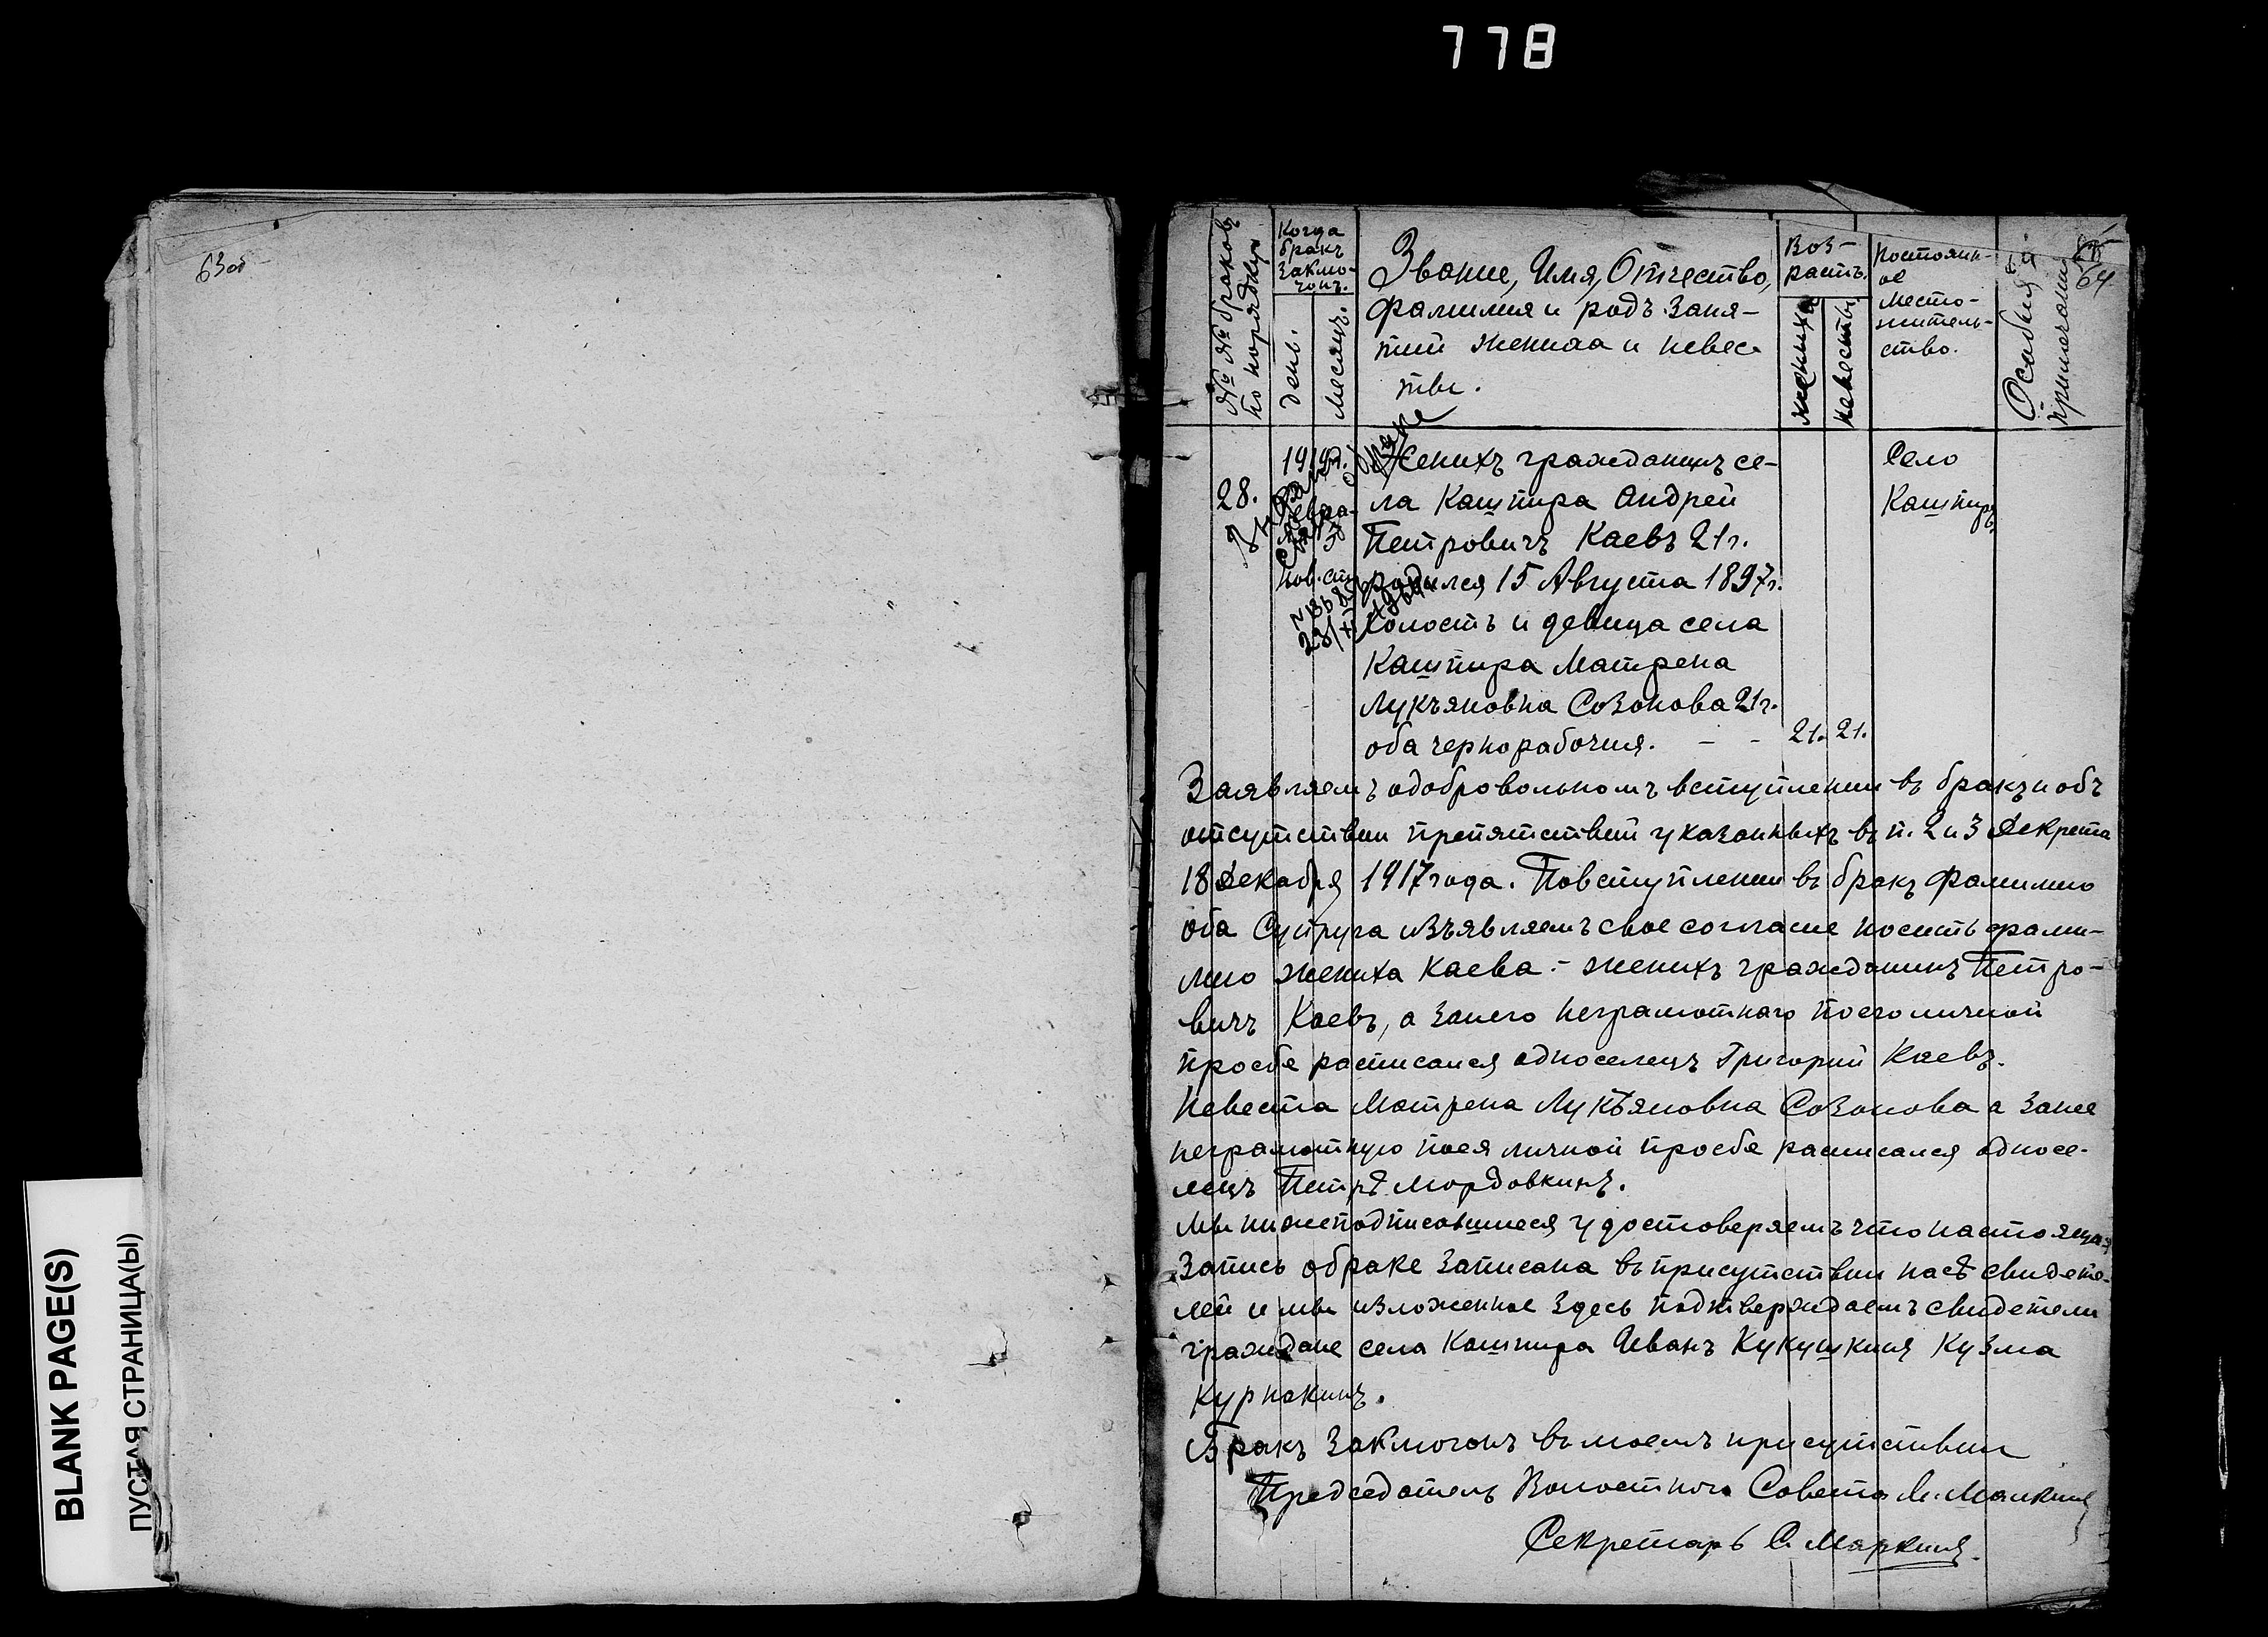 778
63об
BLANK PAGE(S)
ПУСТАЯ СТРАНИЦА(Ы)
64
№№ браковъ
по порядку
Когда
бракъ
заклю-
чонъ.
день.
месяцъ.
Звание, Имя, Отчество,
фамилия и родъ заня-
тий жениаа и невес-
ты.
Воз-
растъ.
жениха
невесты
Постоян-
ое
место-
житель-
ство.
Особыя
примечания
28.
1919г.
Февра-
нов. ст.
23/XII
Женихъ гражданинъ се-
ла Кашпира Андрей
Петровичъ Каевъ 21г.
родился 15 Августа 1897г.
Холостъ и девица села
Кашпира Матрена
Лукъяновна Созонова 21г.
оба чернорабочия. - -
21. 21.
Село
Кашпиръ
Заявляемъ одобровольномъ вступлении въ бракъ и объ
отсутствии препятствий указанныхъ въ п. 2 и 3 Декрета
18 Декабря 1917 года. Повступлении въ бракъ фамилию
оба Супруга изъявляемъ свое согласие носить фами-
лию жениха Каева :- женихъ гражданинъ Петро-
вичъ Каевъ, а занего неграмотнаго поеголичной
просбе расписался односелецъ Григорий Каевъ.
Невеста Матрена Лукъяновна Созонова а занее
неграмотную поея личной просбе расписался односе-
лецъ Петръ Мордовкинъ.
Мы нижеподписавшиеся удостоверяемъ что настоящая
Запись обраке записана въ присутствии насъ свидете-
лей и мы изложенное здесь подтверждаемъ свидетели
граждане села Кашпира Иванъ Кукушкинъ Кузма
Курнакинъ.
Бракъ заключонъ въ моемъ присутствии
Председатель Волостного Совета М. Малкинъ
Секретарь С. Маркинъ.